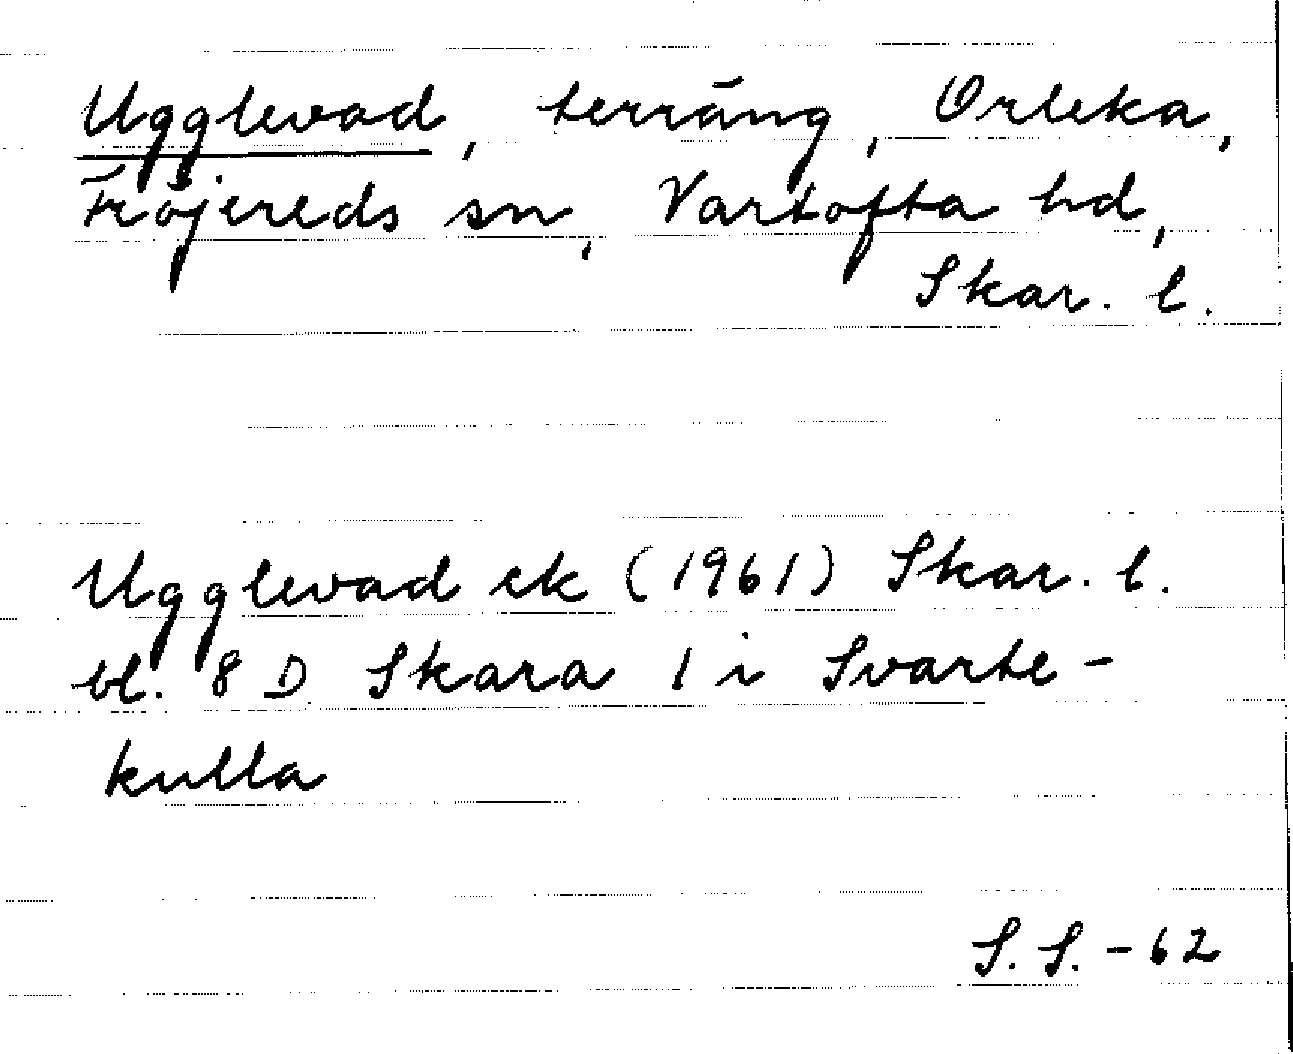 Ugglevad, terräng, Orleka,
Fröjereds sn, Vartofta hd,
Skar. l.
Ugglevad ek (1961) Skar. l.
bl. 8 D Skara 1 i Svarte-
kulla
S. S. - 62